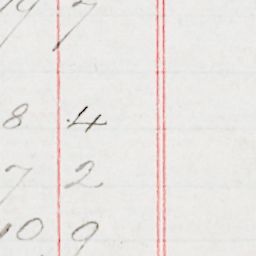 19 7
8 4
7 2
10 9